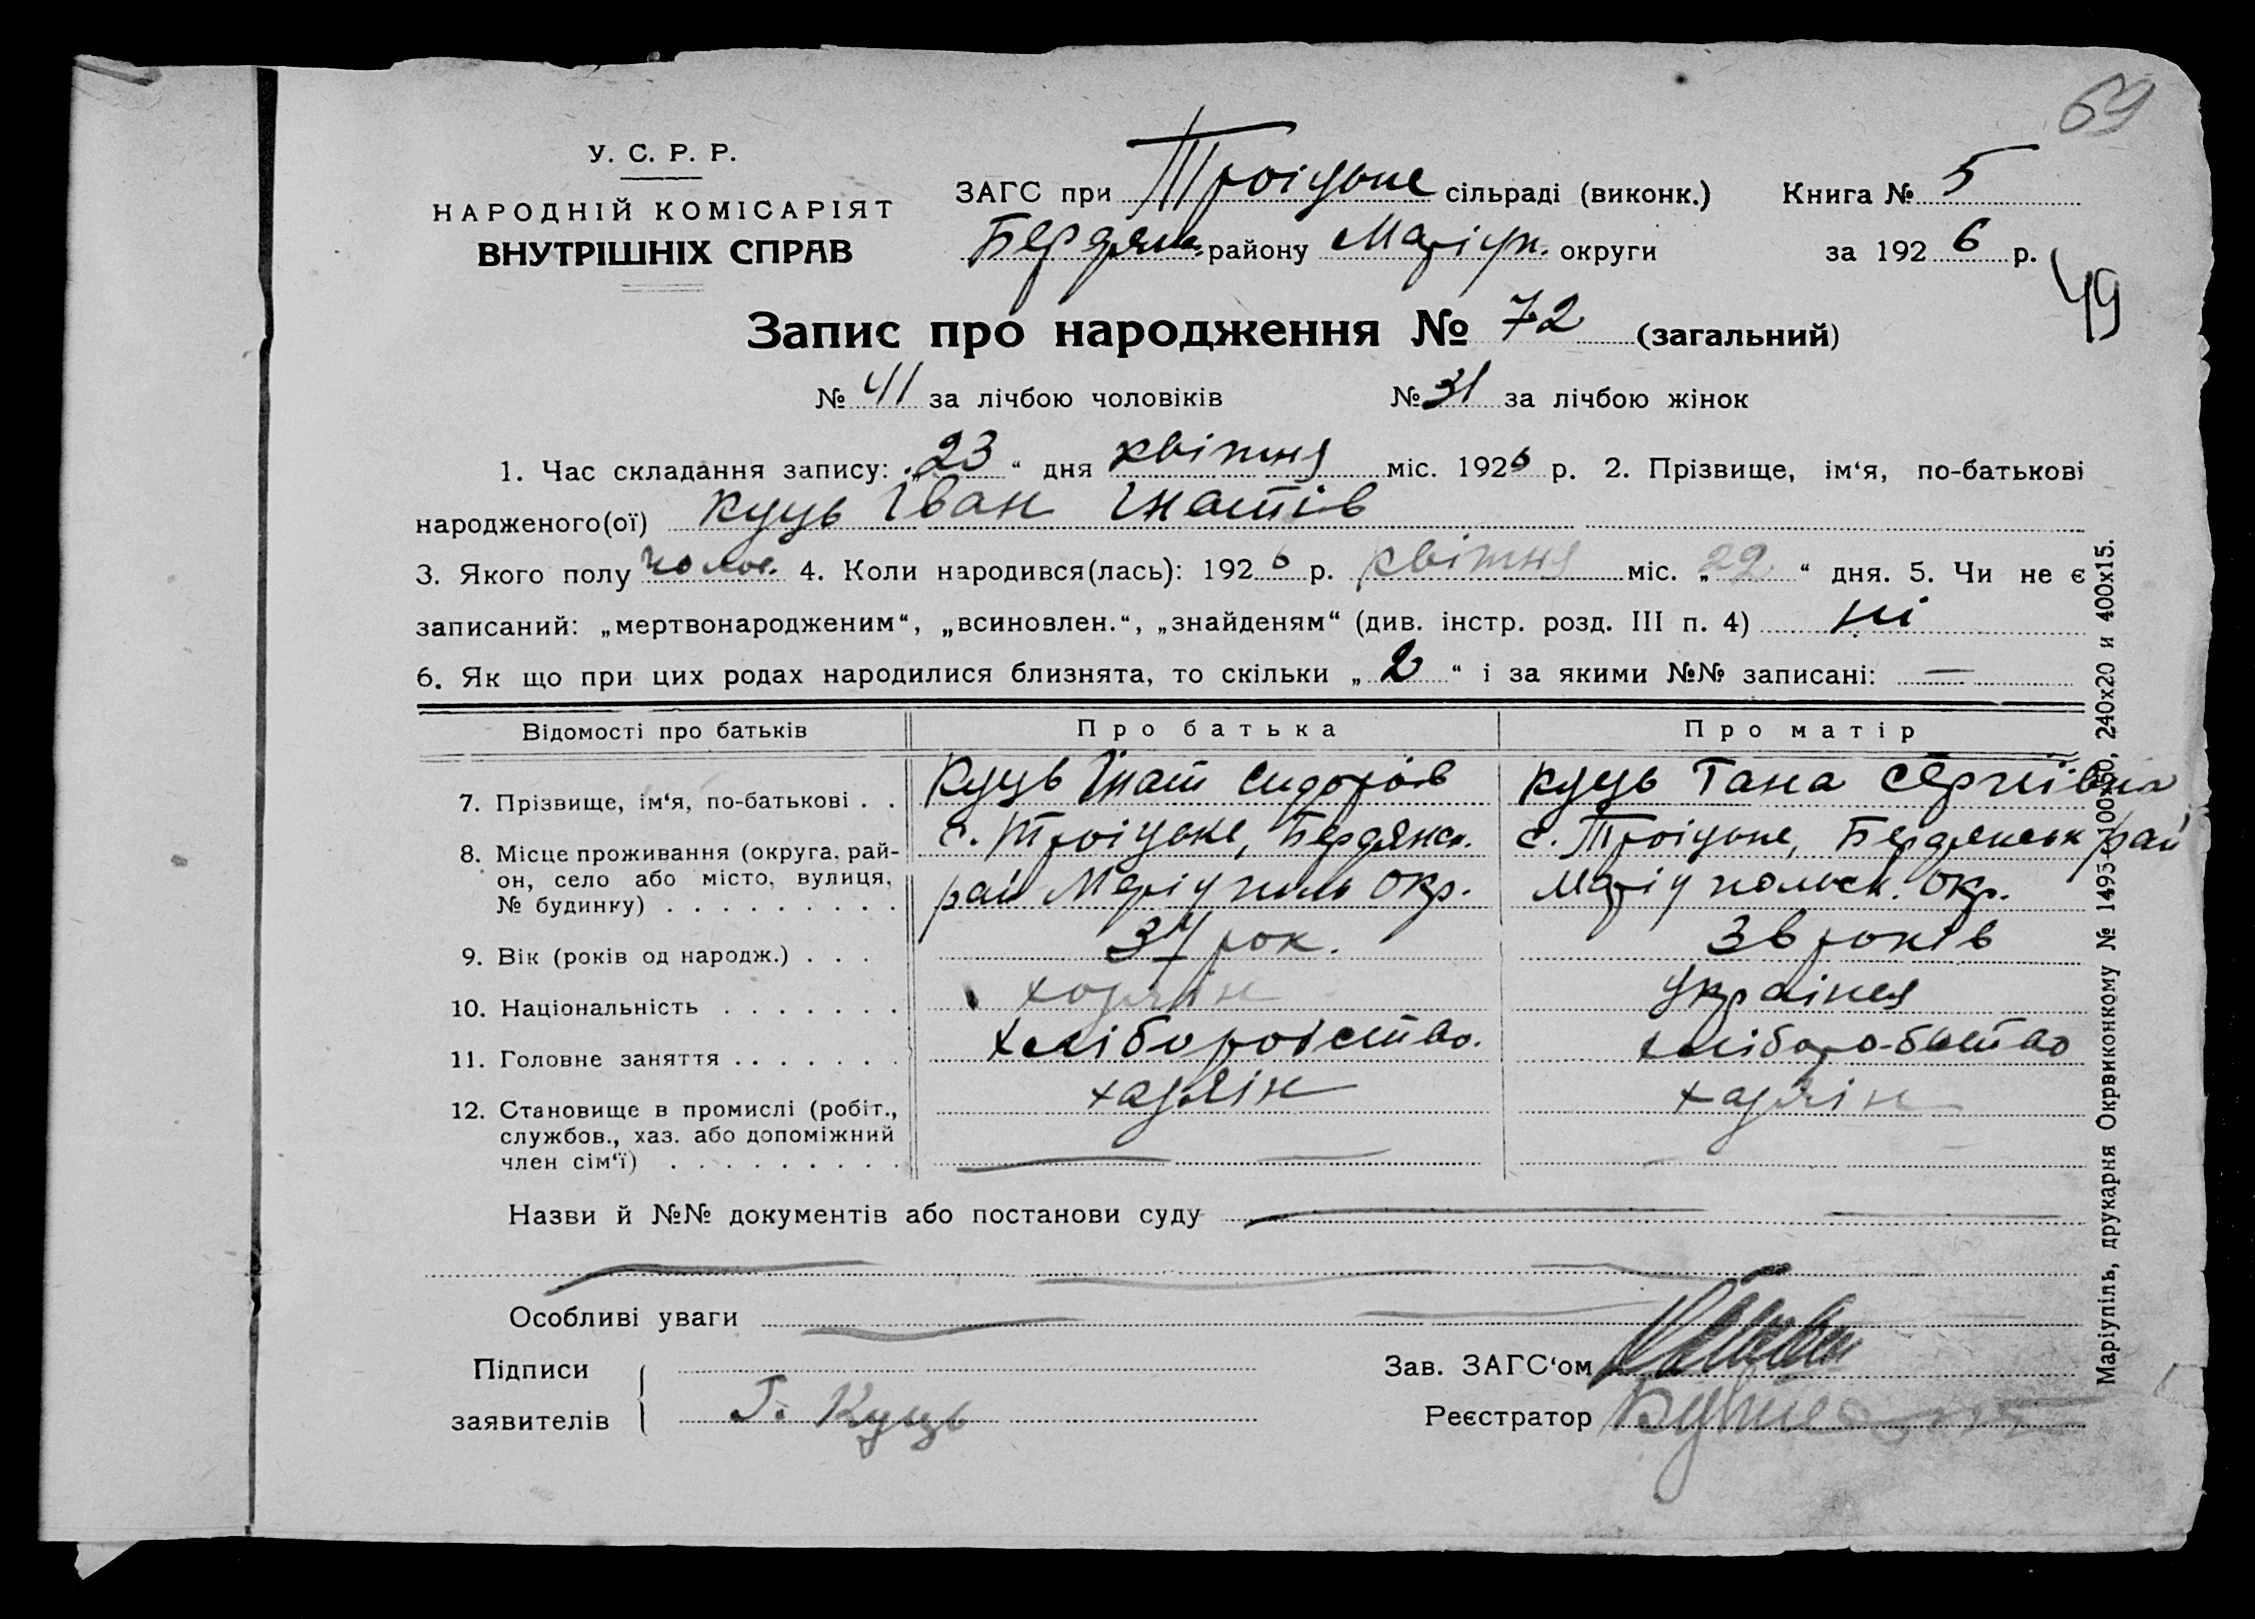 69
У. С. Р. Р.
НАРОДНІЙ КОМІСАРІЯТ
ВНУТРІШНІХ СПРАВ
ЗАГС при Троіцьке сільраді (виконк.) Книга № 5
Бердянс. району Маріуп. округи за 1926 р.
49
Запис про народження № 72 (загальний)
№ 41 за лічбою чоловіків № 31 за лічбою жінок
1. Час складання запису: „23“ дня квітня міс. 1926 р. 2. Прізвище, ім‘я, по-батькові
народженого(ої) Куць Іван Ігнатів
3. Якого полу чолов. 4. Коли народився(лась): 1926 р. квітня міс. „22“ дня. 5. Чи не є
записаний: „мертвонародженим“, „всиновлен.“, „знайденям“ (див. інстр. розд. III п. 4) ні
6. Як що при цих родах народилися близнята, то скільки „2“ і за якими №№ записані: —
Відомості про батьків Про батька Про матір
7. Прізвище, ім‘я, по-батькові . . Куць Ігнат Сидорів Куць Гана Сергіївна
8. Місце проживання (округа, рай- с. Троіцьке, Бердянс. с. Троіцьке, Бердянськ рай
он, село або місто, вулиця,
№ будинку) . . . . . . . . . рай Маріуполь окр. Маріупольск. окр.
9. Вік (років од народж.) . . . 34 рок. 36 років
10. Національність . . . . . . . Украінця
11. Головне заняття . . . . . . . хліборобство. хлібороб-бство
12. Становище в промислі (робіт., хазяін хазяін
службов., хаз. або допоміжний
член сім‘ї) . . . . . . . . . —
Назви й №№ документів або постанови суду
Особливі уваги
Підписи Зав. ЗАГС‘ом
заявителів Г. Куць Реєстратор
Маріупіль, друкарня Окрвиконкому № 1495—100х50, 240х20 и 400х15.